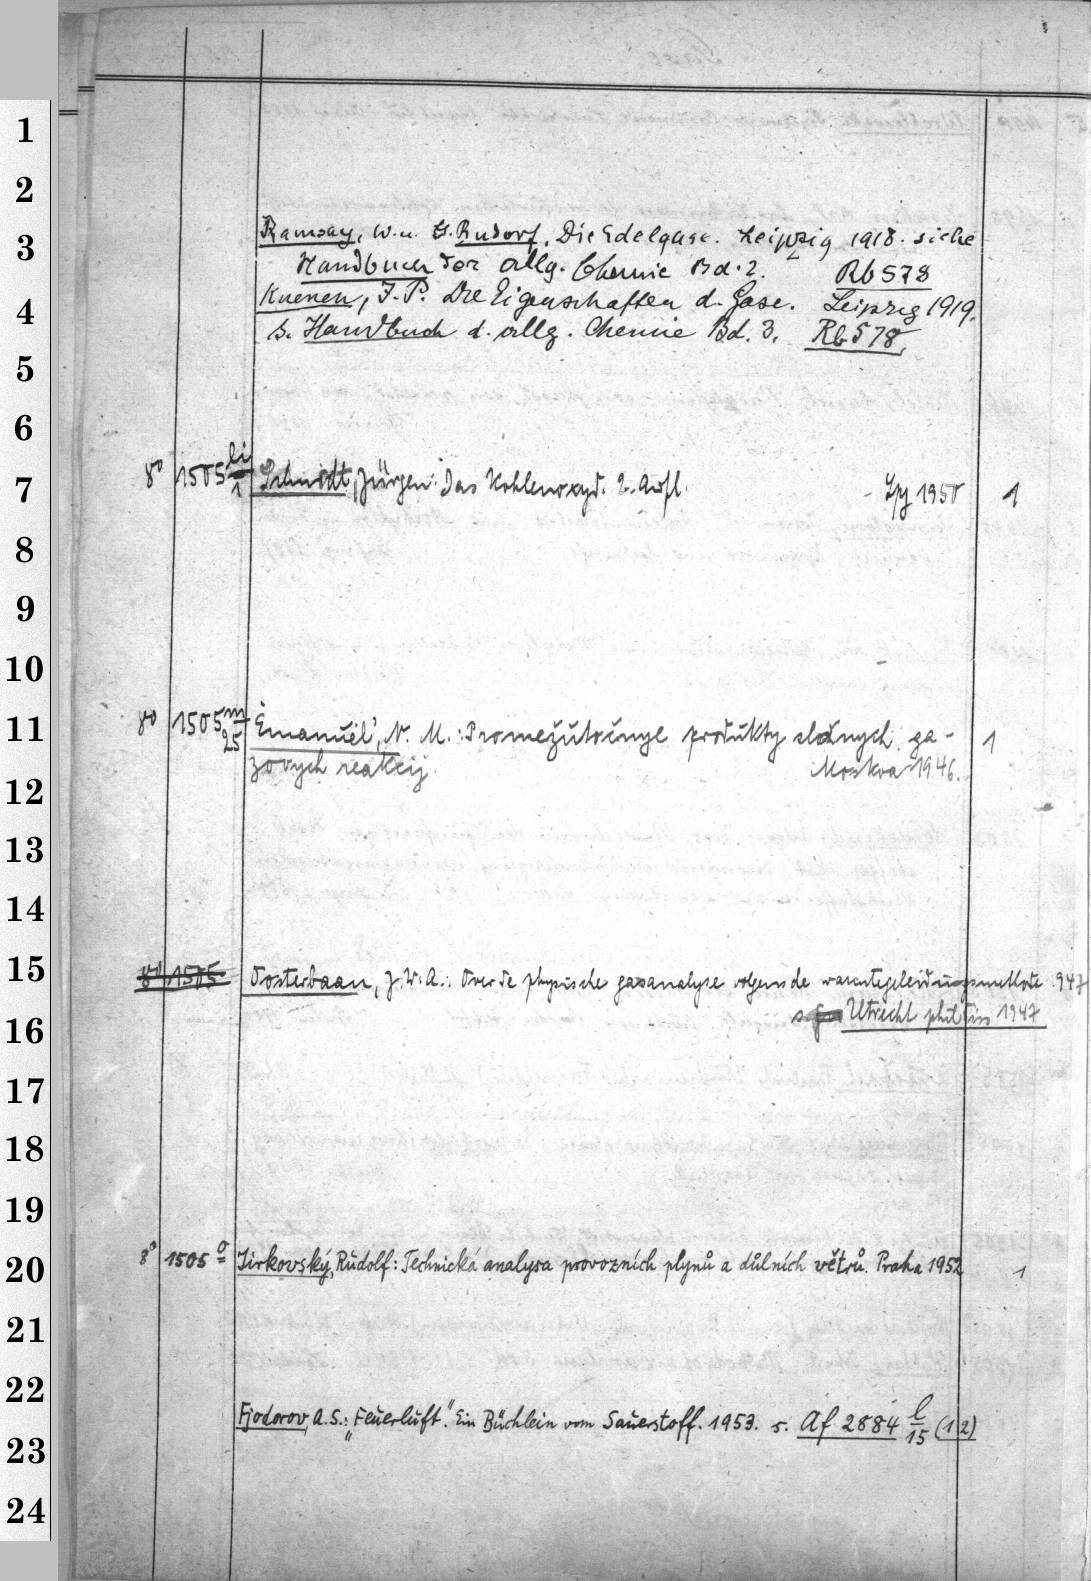 1
2
3
4
5
6
7
8
9
10
11
12
13
14
15
16
17
18
19
20
21
22
23
24
Ramsay, W. u. G. Rudorf, Die Edelgase. Leipzig 1918. siehe
Handbuch der allg. Chemie Bd. 2. Rb 578
Kuenen, J. P. Die Eigenschaften d. Gase. Leipzig 1919.
s. Handbuch d. allg. Chemie Bd. 3. Rb 578.
8° 1505 li/1 Schmidt, Jürgen: Das Kohlenoxyd. 2. Aufl. Lpz 1950 1
8° 1505 m/25 Ėmanuėl', N. M.: Promežutočnye produkty složnych ga- 1
zovych reakcij. Moskva 1946.
8° 1505 Oosterbaan, J. W. A.: Over de physische gasanalyse volgens de warmtegeleidingsmethode. 947
s. Utrecht phil Diss 1947
8° 1505 o Jirkovský, Rudolf: Technická analysa provozních plynů a důlních větrů. Praha 1952 1
Fjodorov, A. S.: „Feuerluft." Ein Büchlein vom Sauerstoff. 1953. s. Af 2884 l/15 (12)